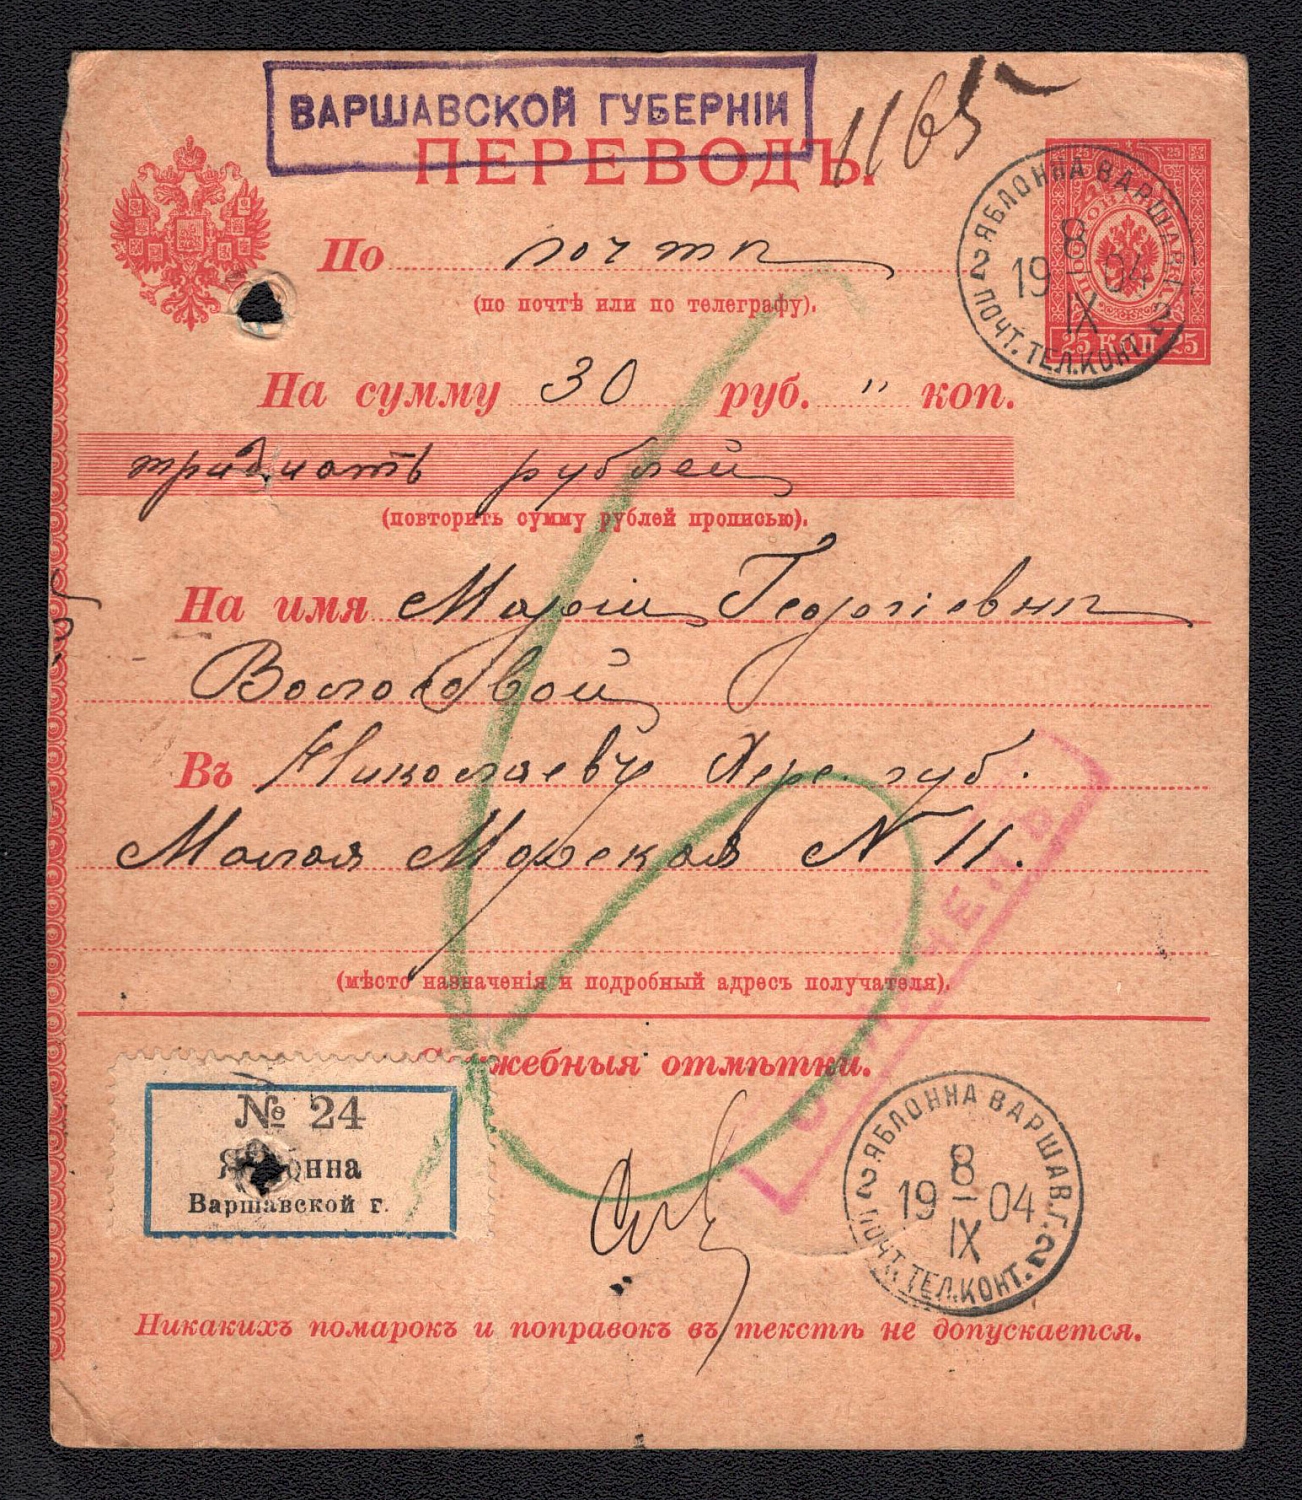 ВАРШАВСКОЙ ГУБЕРНІИ
1165
ПЕРЕВОДЪ.
25 КОП 25
ЯБЛОННА ВАРШАВ.Г.
2 8 IX 1904 2
ПОЧТ.ТЕЛ.КОНТ.
По почтѣ
(по почтѣ или по телеграфу).
На сумму 30 руб. " коп.
тридцать рублей
(повторить сумму рублей прописью).
На имя Маріи Георгіевнѣ
Волосовой
Въ Николаевъ Херс. губ.
Малая Морская N 11.
(мѣсто назначенія и подробный адресъ получателя).
Служебныя отмѣтки.
№ 24
Яблонна
Варшавской г.
ЯБЛОННА ВАРШАВ.Г.
2 8 IX 1904 2
ПОЧТ.ТЕЛ.КОНТ.
Никакихъ помарокъ и поправокъ въ текстѣ не допускается.